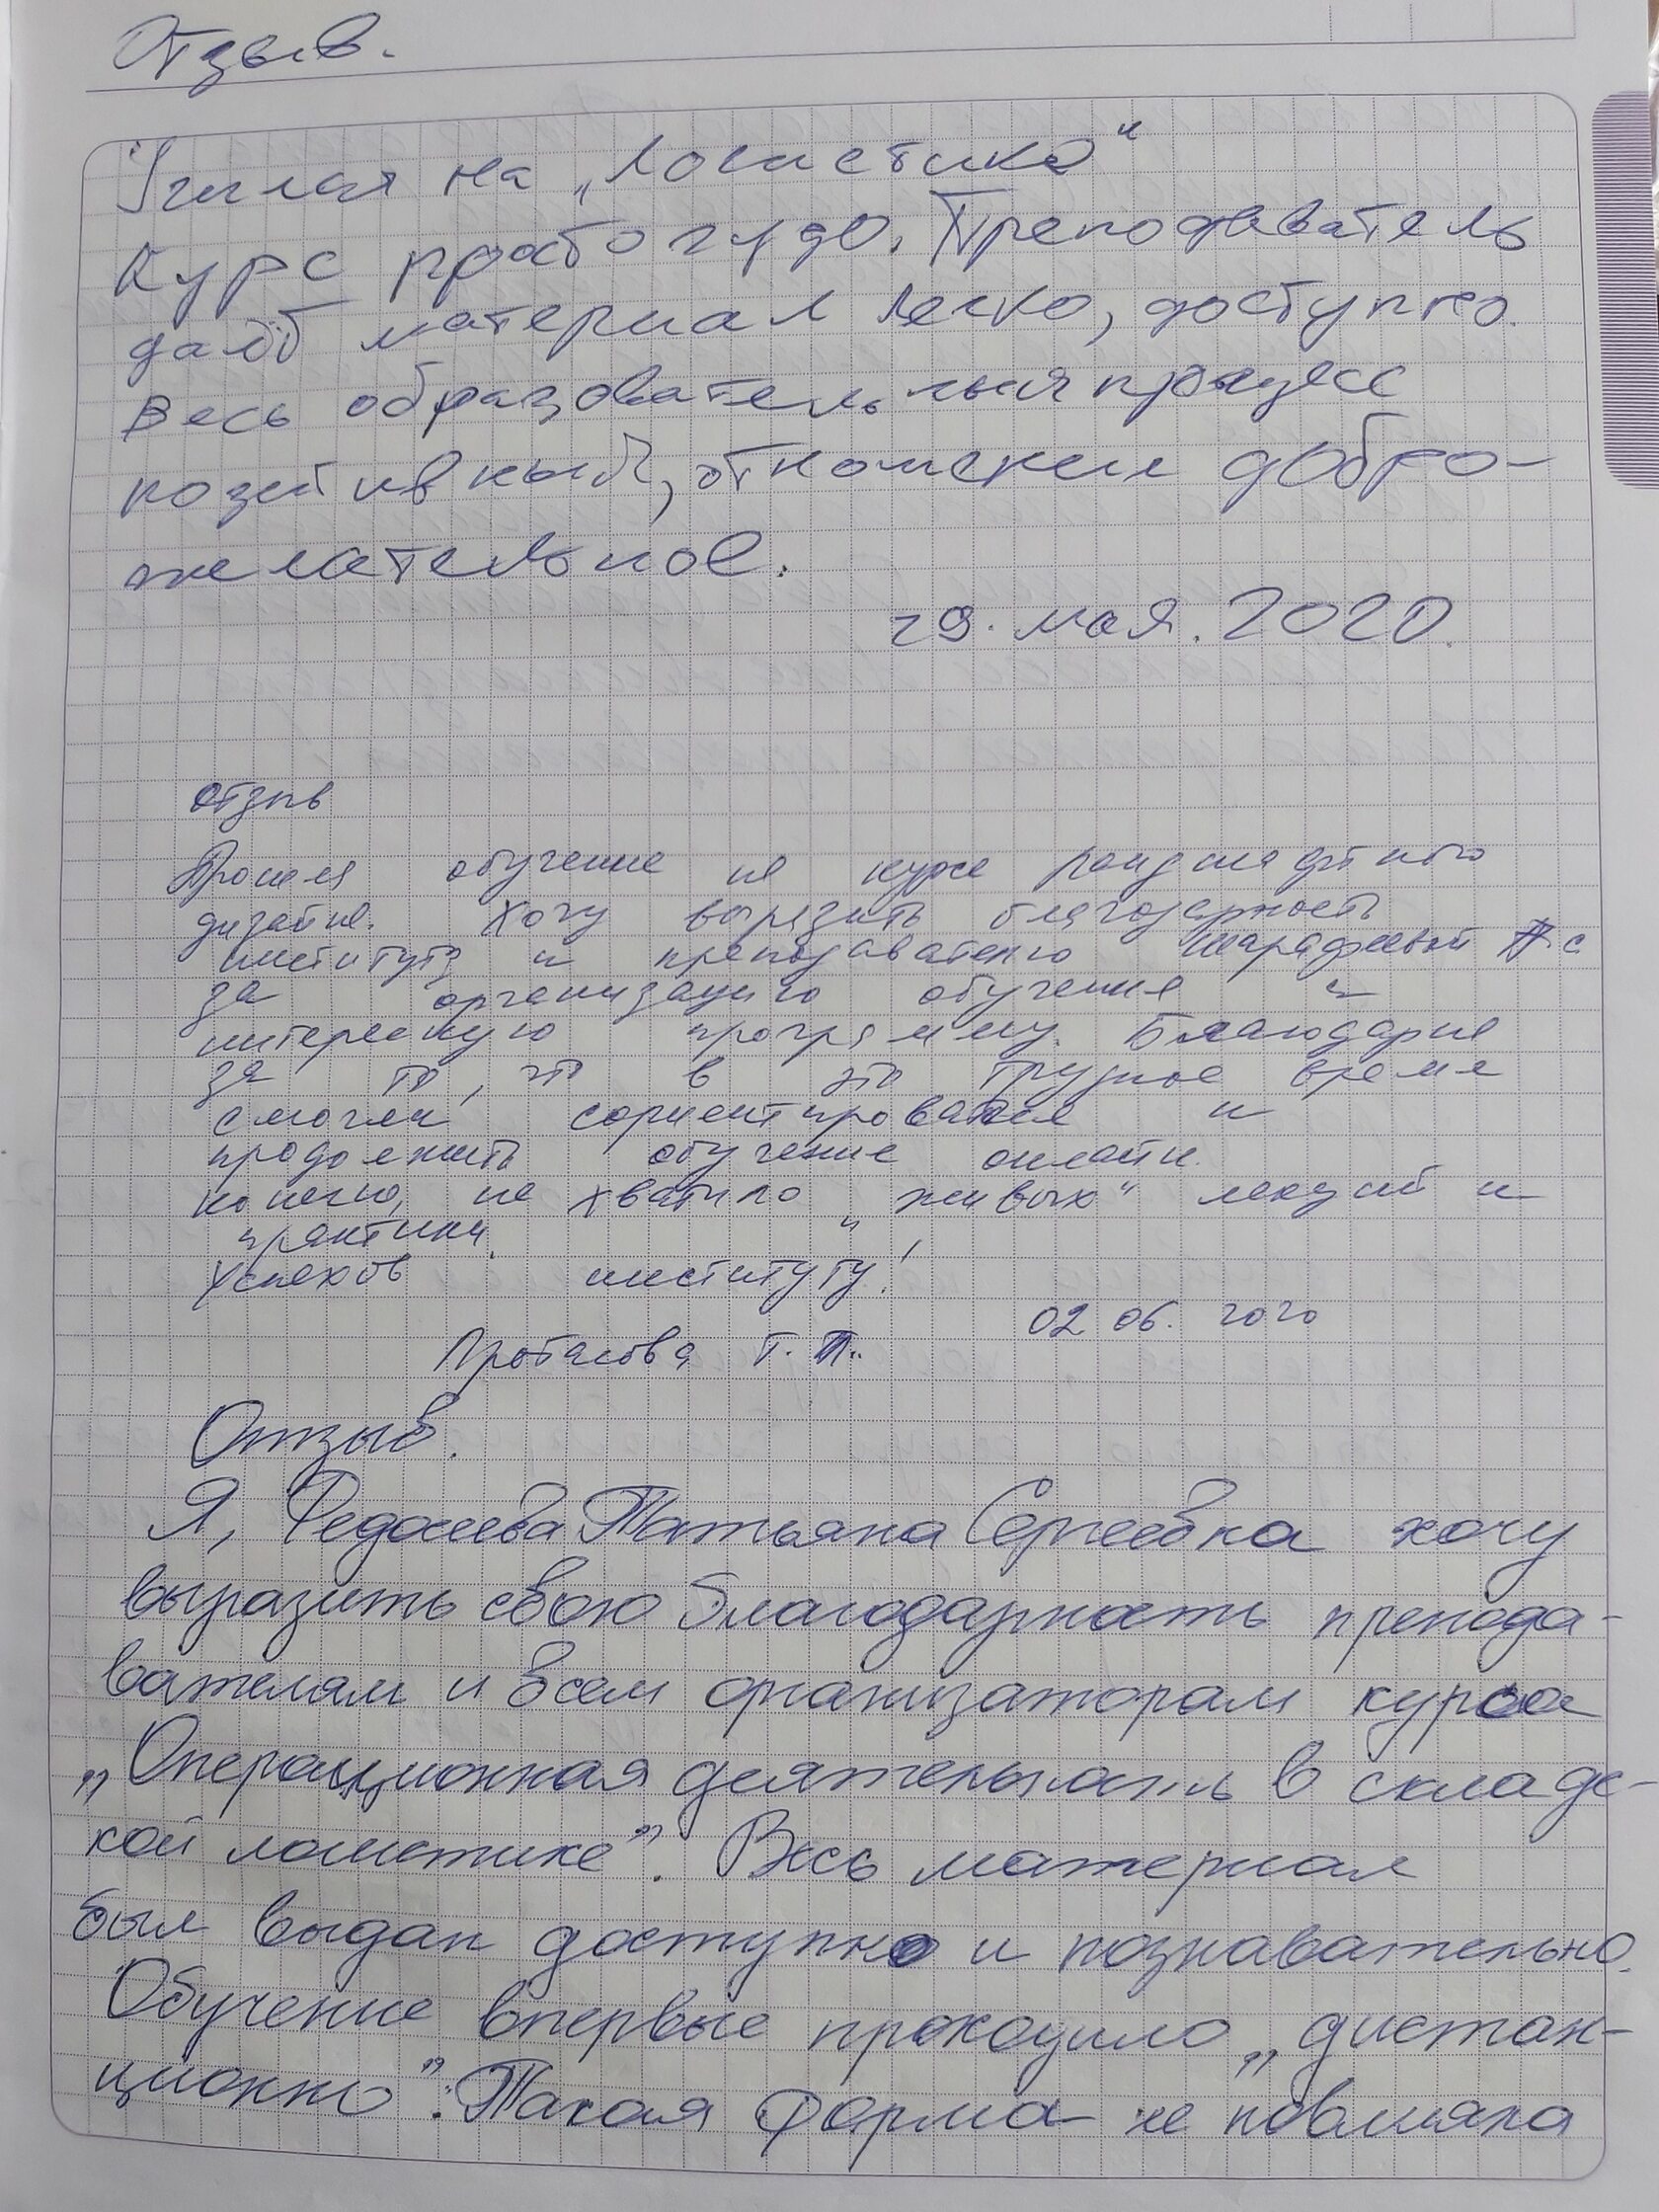 Отзыв.
Училая на „Логистика“
Курс просто чудо. Преподаватель
даёт материал легко, доступно.
Весь образовательныя процесс
позитивный, отношении добро-
желательное.
29. мая. 2020.
отзыв
Прошла обучение на курсе ландшафтного
дизайна. Хочу выразить благодарность
институту и преподавателю Шарафеевой Т.С
за организацию обучения и
интересную программу. Благодарна
за то, что в это трудное время
смогли сориентироваться и
продолжить обучение онлайн.
Конечно, не хватило „живых“ лекций и
практики.
Успехов институту!
02 06. 2020
Протасова Т. П.
Отзыв.
Я, Федосеева Татьяна Сергеевна хочу
выразить свою благодарность препода-
вателям и всем организаторам курса
„Операционная деятельность в складс-
кой логистике”. Весь материал
был выдан доступно и познавательно.
Обучение впервые проходило „дистан-
ционно”. Такая форма не повлияла